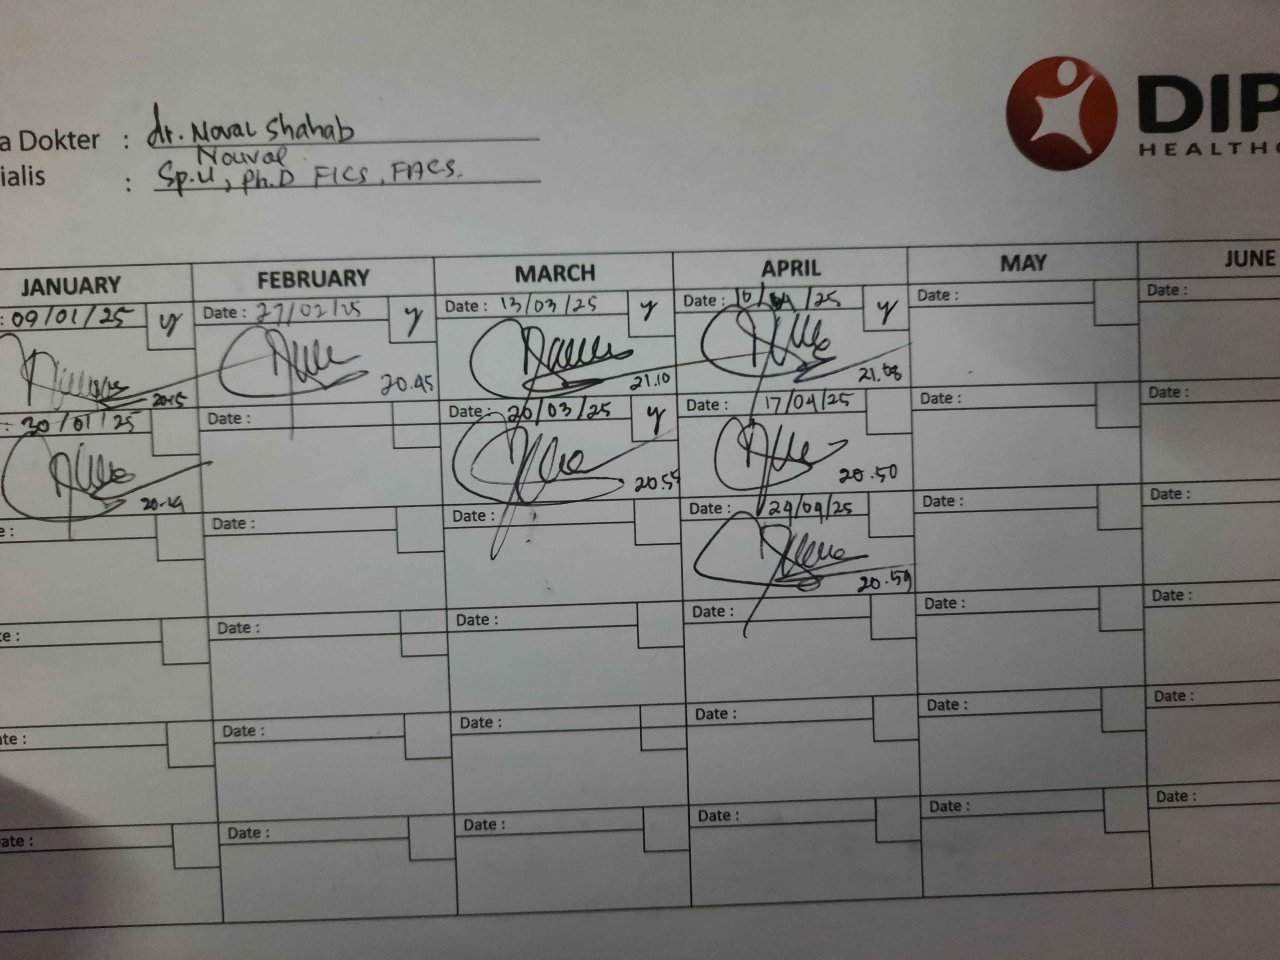 DIP
HEALTHC
a Dokter : dr. Noval Shahab
Nouval
ialis : Sp.U, Ph.D FICS, FACS.
JANUARY FEBRUARY MARCH APRIL MAY JUNE
: 09/01/25 y Date : 27/02/25 y Date : 13/03/25 y Date : 10/04/25 y Date : Date :
20.45 21.10 21.08
: 30/01/25 Date : Date : 20/03/25 y Date : 17/04/25 Date : Date :
20.55 20.50
e : Date : Date : Date : 24/04/25 Date : Date :
20.59
te : Date : Date : Date : Date : Date :
ate : Date : Date : Date : Date : Date :
ate : Date : Date : Date : Date : Date :